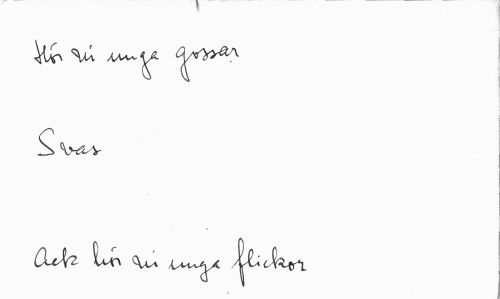 Hör ni unga gossar
Svar
Ack hör ni unga flickor